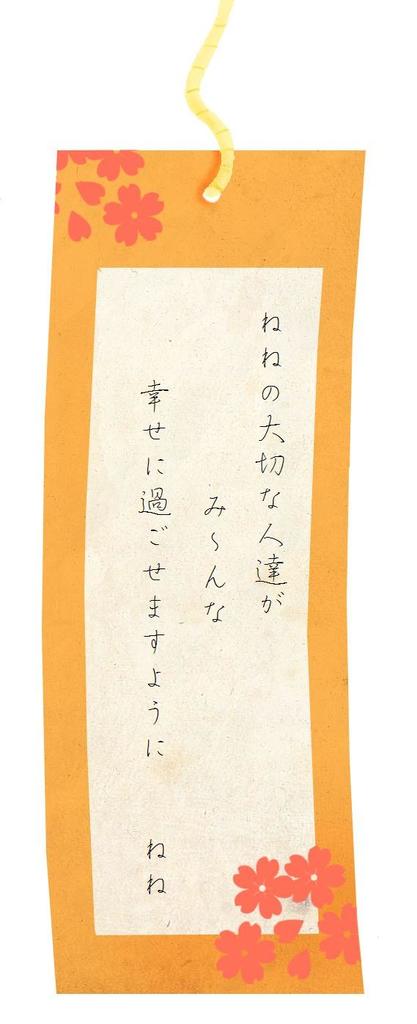 ねねの大切な人達が
み〜んな
幸せに過ごせますように　ねね